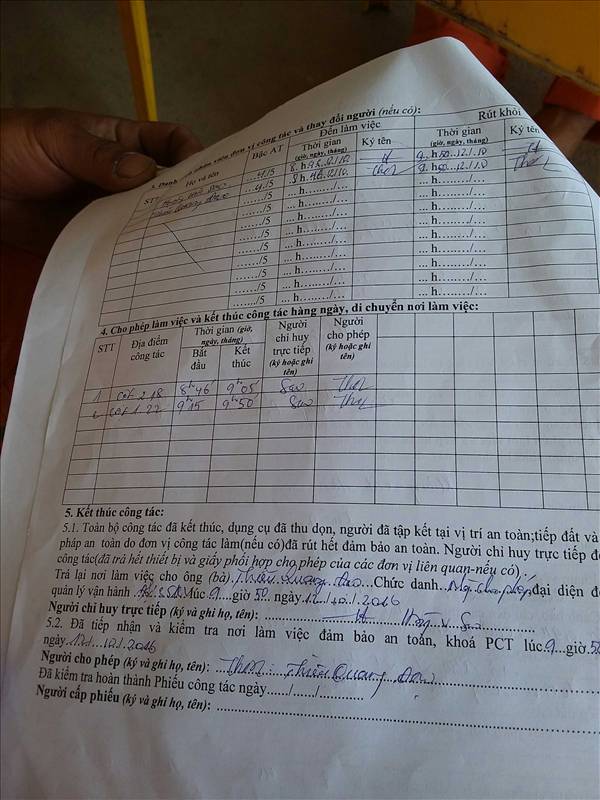 3. Danh sách nhân viên đơn vị công tác và thay đổi người (nếu có):
STT Họ và tên Bậc AT Đến làm việc Rút khỏi
Thời gian (giờ, ngày, tháng) Ký tên Thời gian (giờ, ngày, tháng) Ký tên
...4/5
...4/5
....../5 ... h......../... ... h......../...
....../5 ... h......../... ... h......../...
....../5 ... h......../... ... h......../...
....../5 ... h......../... ... h......../...
....../5 ... h......../... ... h......../...
....../5 ... h......../... ... h......../...
....../5 ... h......../... ... h......../...
....../5 ... h......../... ... h......../...
4. Cho phép làm việc và kết thúc công tác hàng ngày, di chuyển nơi làm việc:
STT Địa điểm công tác Thời gian (giờ, ngày, tháng) Người chỉ huy trực tiếp (ký hoặc ghi tên) Người cho phép (ký hoặc ghi tên)
Bắt đầu Kết thúc
1 cột 218 8h46' 9h05'
2 cột 122 9h15 9h50'
5. Kết thúc công tác:
5.1. Toàn bộ công tác đã kết thúc, dụng cụ đã thu dọn, người đã tập kết tại vị trí an toàn;tiếp đất và
pháp an toàn do đơn vị công tác làm(nếu có)đã rút hết đảm bảo an toàn. Người chỉ huy trực tiếp
công tác(đã trả hết thiết bị và giấy phối hợp cho phép của các đơn vị liên quan-nếu có).
Trả lại nơi làm việc cho ông (bà) Thiều Quang Đạo...Chức danh...Ng cho phép đại diện
quản lý vận hành lúc 9...giờ 50 ngày 12/10/2016
Người chỉ huy trực tiếp (ký và ghi họ, tên):
5.2. Đã tiếp nhận và kiểm tra nơi làm việc đảm bảo an toàn, khoá PCT lúc 9...giờ
ngày 12/10/2016
Người cho phép (ký và ghi họ, tên): Thiều Quang Đạo
Đã kiểm tra hoàn thành Phiếu công tác ngày....../....../............
Người cấp phiếu (ký và ghi họ, tên):